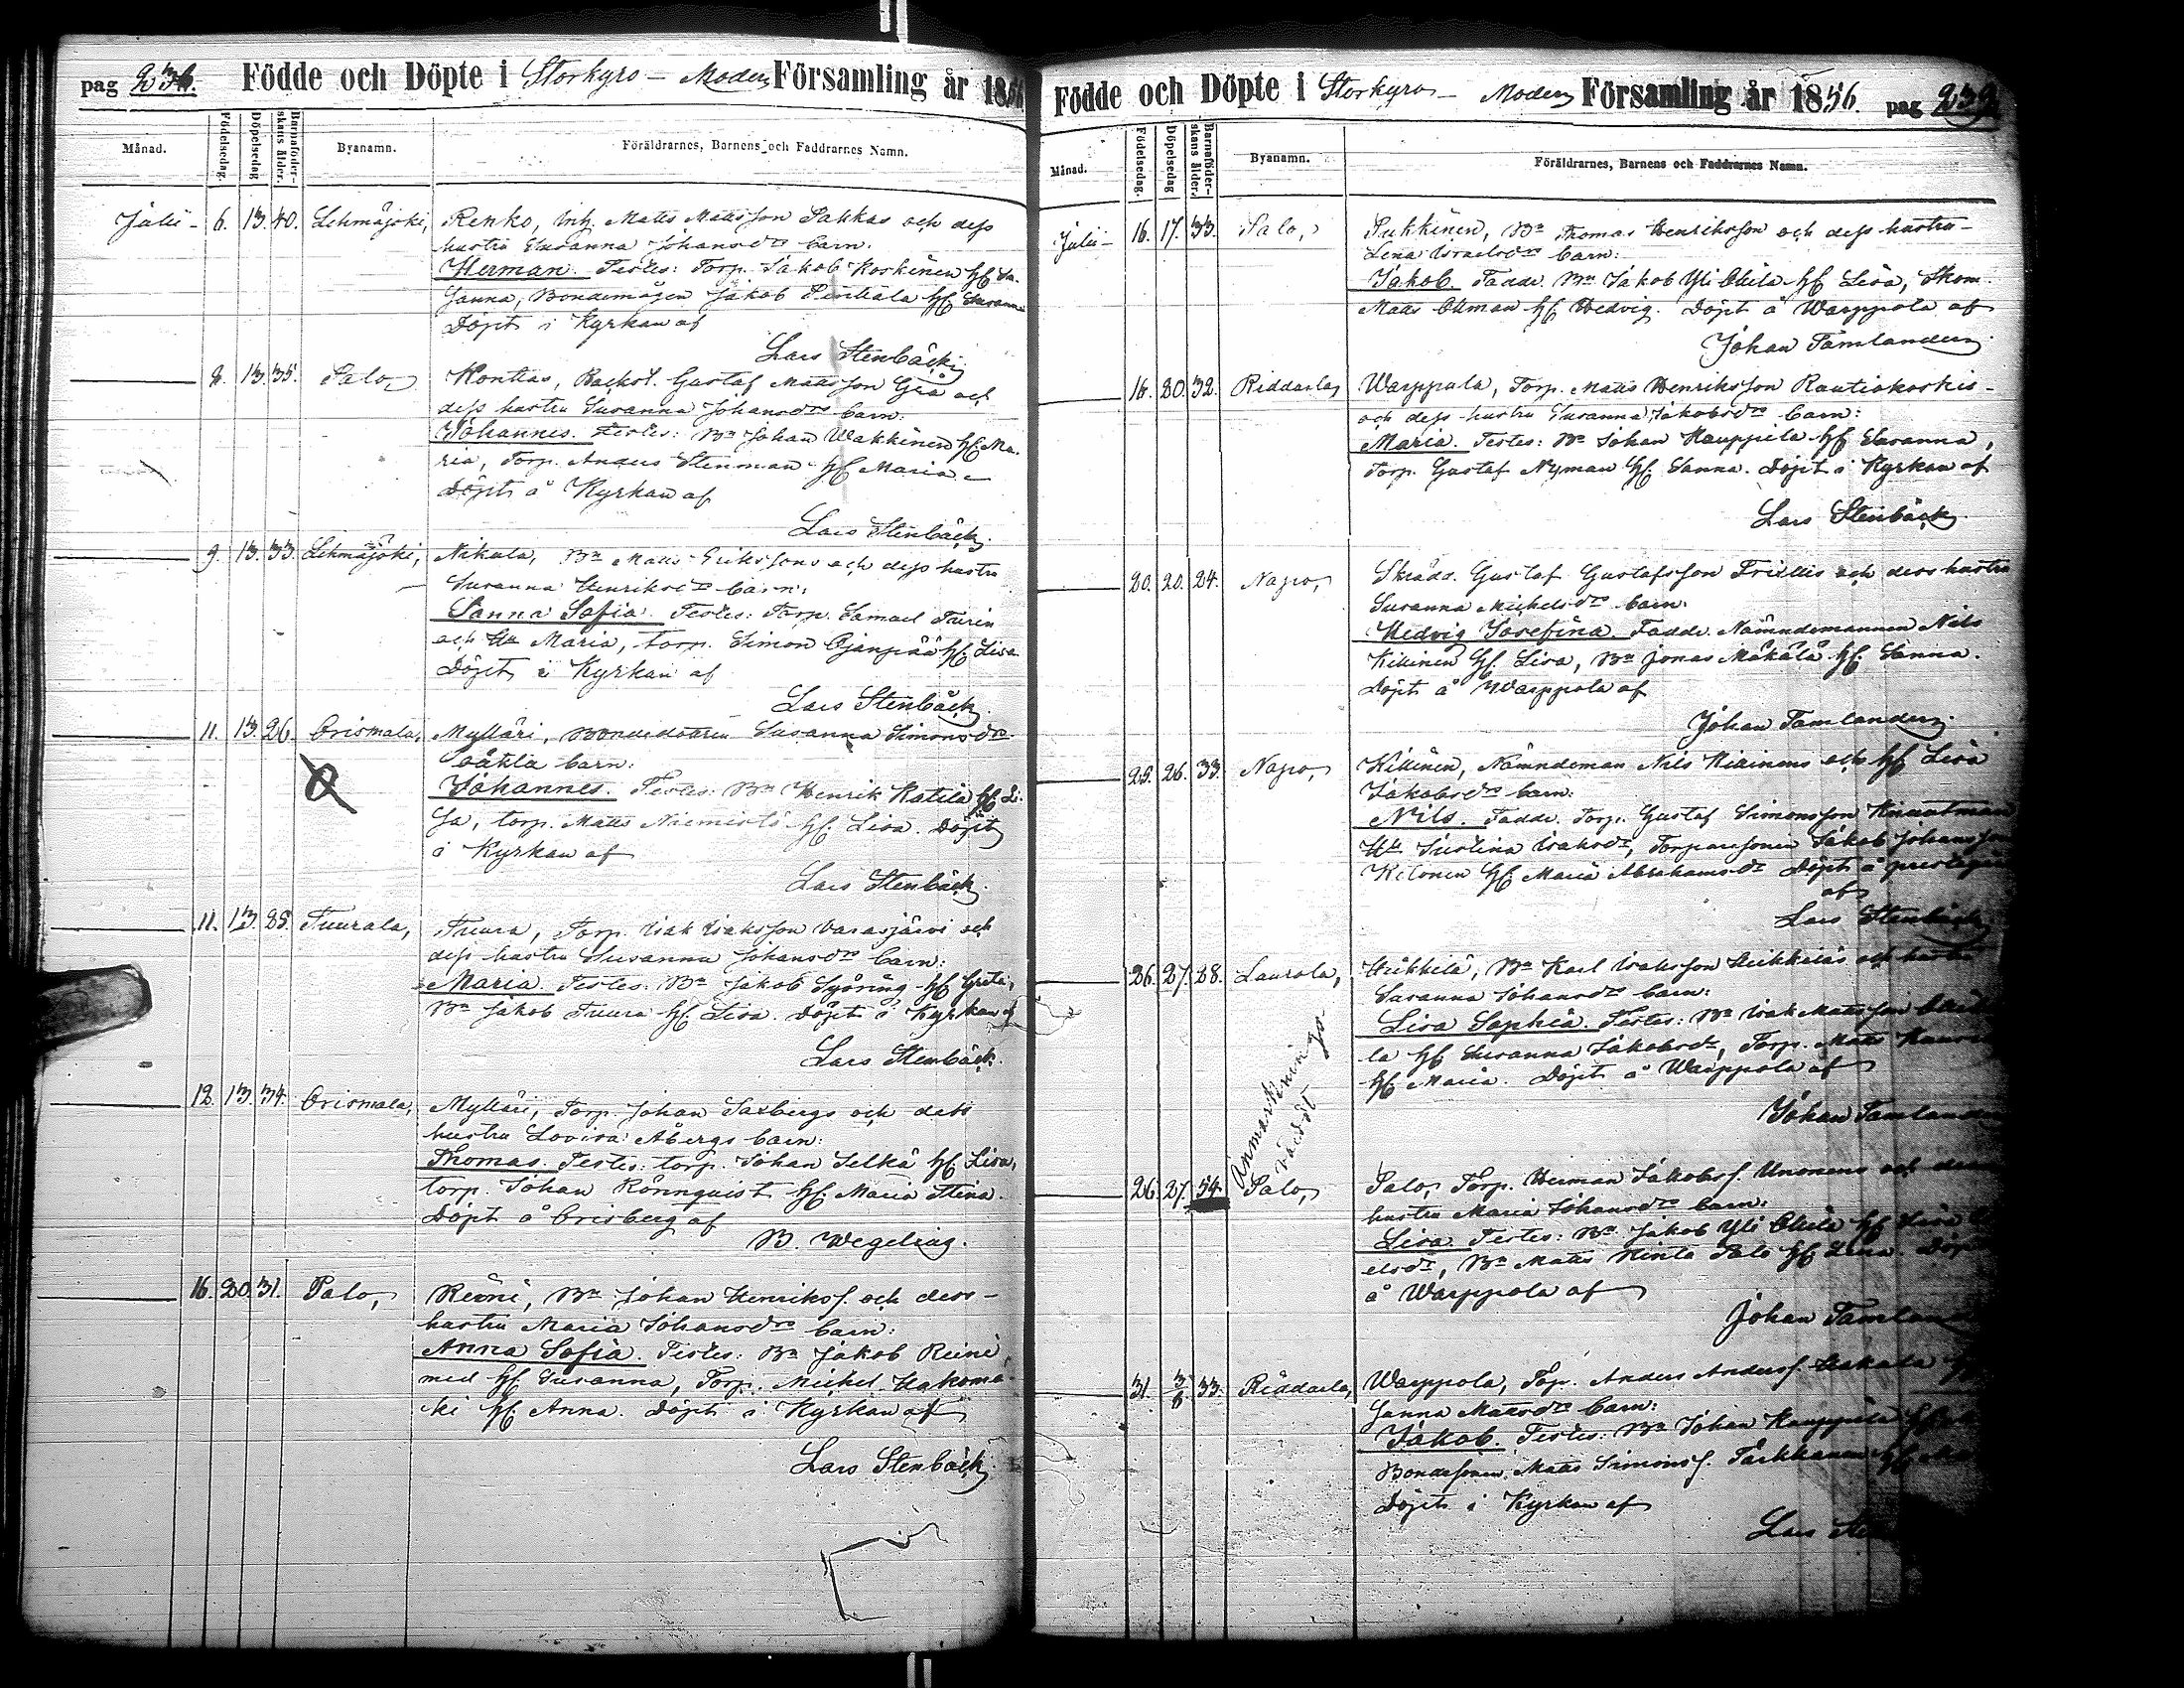 pag 238. Födde och Döpte i Storkyro- Moder Församling år 1856
Månad. Födelsedag. Döpelsedag Barnaföderskans ålder. Byanamn. Föräldrarnes, Barnens och Faddrarnes Namn.
Julii - 6. 13. 40. Lehmäjoki, Renko, Inh. Matts Mattsson Pakkas och dess
hustru Susanna Johansdrs barn.
Herman. Testes: Torp. Jakob Koskinen hf Su-
sanna, Bondemågen Jakob Penttala hf Susanna
Döpt i Kyrkan af
Lars Stenbäck
8. 13. 35. Palo, Konttas, Backst. Gustaf Mattsson Grå och
dess hustru Susanna Johansdrs barn:
Johannes. Testes: Bn Johan Wakkinen hf Ma-
ria, Torp. Anders Stenman hf Maria
Döpt å Kyrkan af
Lars Stenbäck
9. 13. 33. Lehmäjoki, Nikula, Bn Matts Erikssons och dess hustru
Susanna Henriksdrs barn:
Sanna Sofia. Testes: Torp. Samuel
och Hu Maria, torp. Simon Ojanpää hf. Lisa
Döpt i Kyrkan af
Lars Stenbäck.
11. 13. 26. Orismala, Mylläri, Bondedottren Susanna Simonsdrs
oäkta barn:
Johannes. Testes: Bn Henrik Katila hf Li-
sa, torp. Matts Niemistö hf. Lisa. Döpt
i Kyrkan af
Lars Stenbäck.
11. 13. 25. Tuurala, Tuura, Torp. Isak Isaksson Varasjärvi och
dess hustru Susanna Johansdrs barn:
Maria. Testes: Bn Jakob Syöring hf Greta,
Bn Jakob Tuura hf. Lisa. Döpt i Kyrkan af
Lars Stenbäck.
12. 13. 34. Orismala, Mylläri, Torp. Johan Saxbergs och dess
hustru Lovisa Åbergs barn:
Thomas. Testes: torp. Johan Selkä hf Lisa,
torp. Johan Rönnquist hf. Maria Stina.
Döpt å Orisberg af
B. Wegelius.
16. 20. 31. Palo, Reini, Bn Johan Henrikss. och dess
hustru Maria Johansdrs barn:
Anna Sofia. Testes: Bn Jakob Reini
med hf Susanna, Torp. Michel Hakomä-
ki hf. Anna. Döpt i Kyrkan af
Lars Stenbäck
Födde och Döpte i Storkyro- Moder Församling år 1856. pag 239
Månad. Födelsedag. Döpelsedag Barnaföderskans ålder. Byanamn. Föräldrarnes, Barnens och Faddrarnes Namn.
Julii - 16. 17. 33. Palo, Pukkinen, Bn Thomas Henriksson och dess hustru
Lena Israelsdrs barn:
Jakob. Fadd. Bn Jakob Yli Ollila hf Lisa, Skom.
Matts Ohman hf Hedvig. Döpt å Warppola af
Johan Tamlander
16. 20. 32. Riddarla, Warppula, Torp. Matts Henriksson Rautiokoskis
och dess hustru Susanna Jakobsdrs barn:
Maria. Testes: Bn Johan Kauppila hf Susanna,
Torp. Gustaf Nyman hf. Sanna. Döpt i Kyrkan af
Lars Stenbäck
20. 20. 24. Napo, Skrädd. Gustaf Gustafsson och dess hustru
Susanna Michelsdrs barn.
Hedvig Josefina. Fadd. Nämndemannen Nils
Kikinen hf. Lisa, Bn Jonas Mäkälä hf. Sanna.
Döpt å Warppola af
Johan Tamlander
25. 26. 33. Napo, Kikinen, Nämndeman Nils Kikinens och hf Lisa
Jakobsdrs barn:
Nils. Fadd. Torp. Gustaf Simonsson
Hu Justina Isaksdr, Torparesonen Jakob Johansson
Kitonen hf Maria Abrahamsdr Döpt å
af
Lars Stenbäck
26. 27. 28. Laurola, Heikkilä, Bn Karl Isaksson Heikkiläs och hustru
Susanna Johansdrs barn:
Lisa Sophia. Testes: Bn Isak Mattsson
la hf Susanna Jakobsdr, Torp. Matts
hf. Maria. Döpt å Warppola af
Johan Tamlander
Anmärkning
26. 27. 54. Palo, Palo, Torp. Herman Jakobss. Unonens och dess
hustru Maria Johansdrs barn:
Lisa Testes: Bn Jakob Yli Ollila hf Lisa
elsdr, Bn Matts Hinta Palo hf Lena. Döpt
å Warppola af
Johan Tamlander
31. 3/8 33. Riddarla, Warppola, Torp. Anders Anderss. Hakala
sanna Mattsdrs barn:
Jakob. Testes: Bn Johan Kauppila hf
Bondesonen Matts Simonss.
Döpt i Kyrkan af
Lars